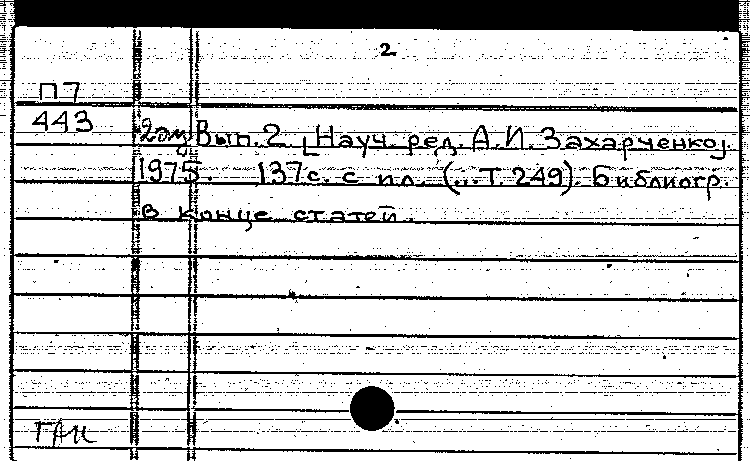 2
П7
443 2экз Вып. 2 [Науч. ред. А. И. Захарченко].
1975. 137с. с ил. (...Т. 249). Библиогр.
в конце статей.